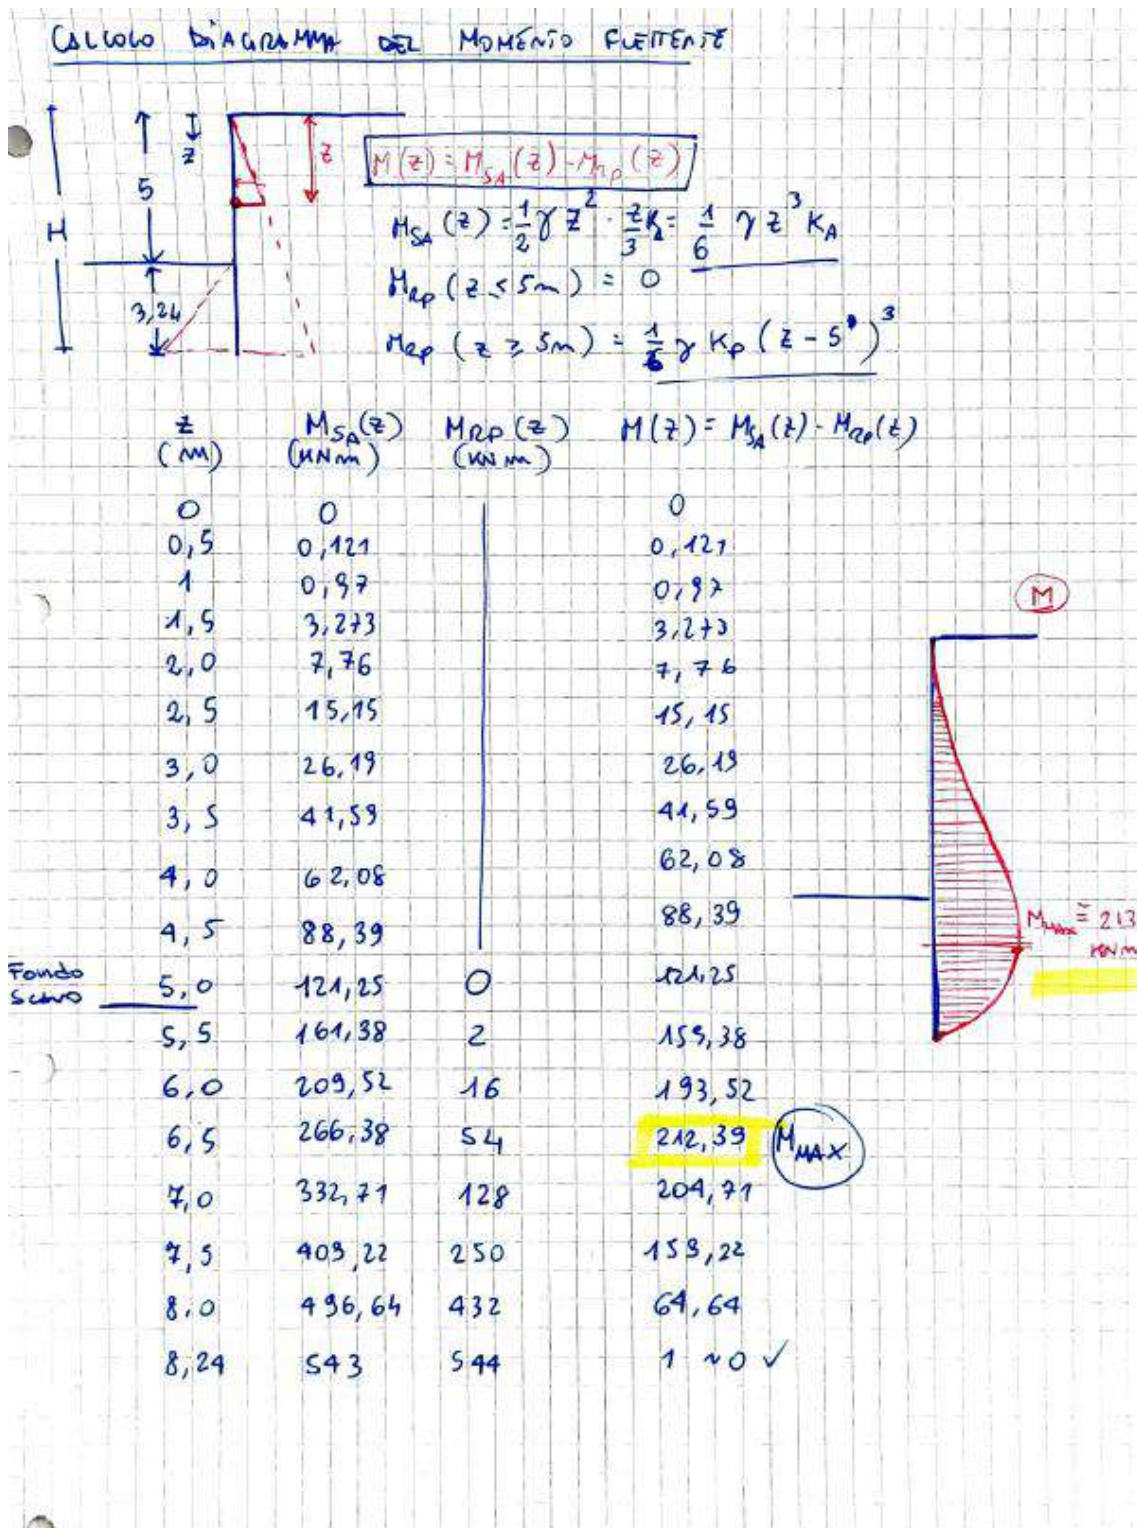 CALCOLO DIAGRAMMA DEL MOMENTO FLETTENTE
H
5
3,24
z
z
M(z) = M_SA(z) - M_RP(z)
M_SA (z) = 1/2 γ z² · z/3 K_A = 1/6 γ z³ K_A
M_RP (z ≤ 5m) = 0
M_RP (z ≥ 5m) = 1/6 γ K_P (z - 5)³
z M_SA(z) M_RP(z) M(z) = M_SA(z) - M_RP(z)
(m) (KNm) (KNm)
0 0 0
0,5 0,121 0,121
1 0,97 0,97
M
1,5 3,273 3,273
2,0 7,76 7,76
2,5 15,15 15,15
3,0 26,19 26,19
3,5 41,59 41,59
4,0 62,08 62,08
4,5 88,39 88,39
M_MAX ≅ 213
KNm
Fondo
Scavo
5,0 121,25 0 121,25
5,5 161,38 2 159,38
6,0 209,52 16 193,52
6,5 266,38 54 212,39 M_MAX
7,0 332,71 128 204,71
7,5 409,22 250 159,22
8,0 496,64 432 64,64
8,24 543 544 1 ~0 ✓